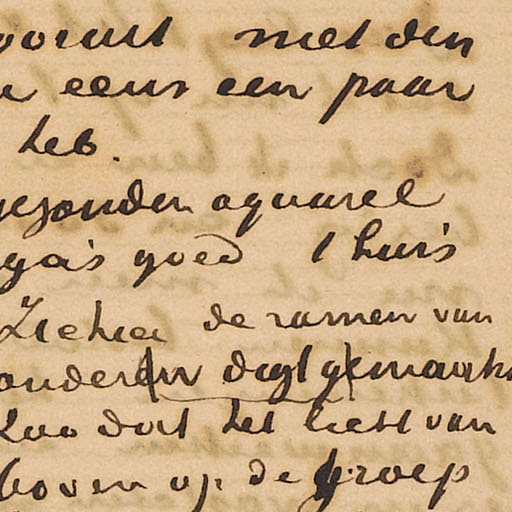 vooruit met den
eens een paar
heb.
gezonden aquarel
ga's goed 't huis
Ziehier de ramen van
onderen digt gemaakt
zoo dat het licht van
boven op de groep